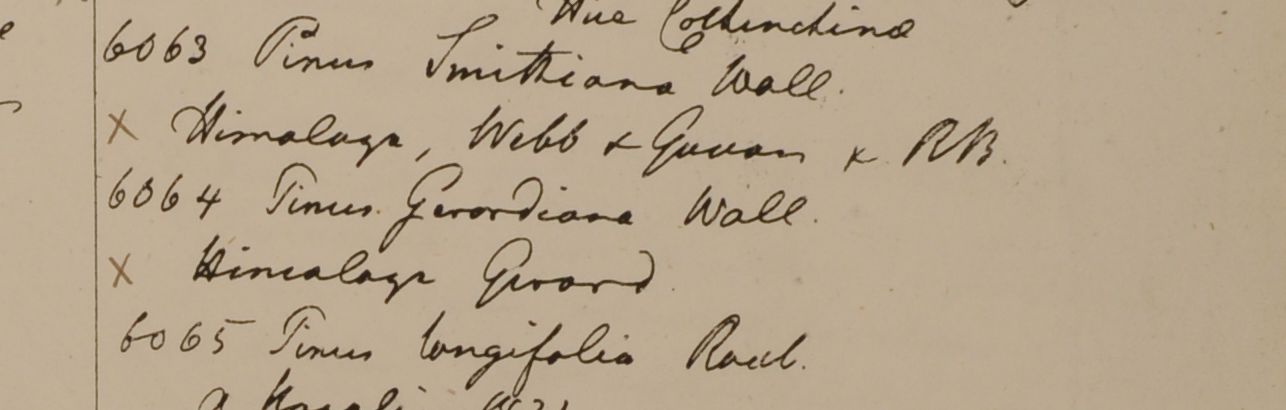 Hue Cochinchina
6063 Pinus Smithiana Wall.
x Himalaya, Webb & Govan & RB.
6064 Pinus Gerardiana Wall.
x Himalaya Gerard
6065 Pinus longifolia Roxb.
a Napali